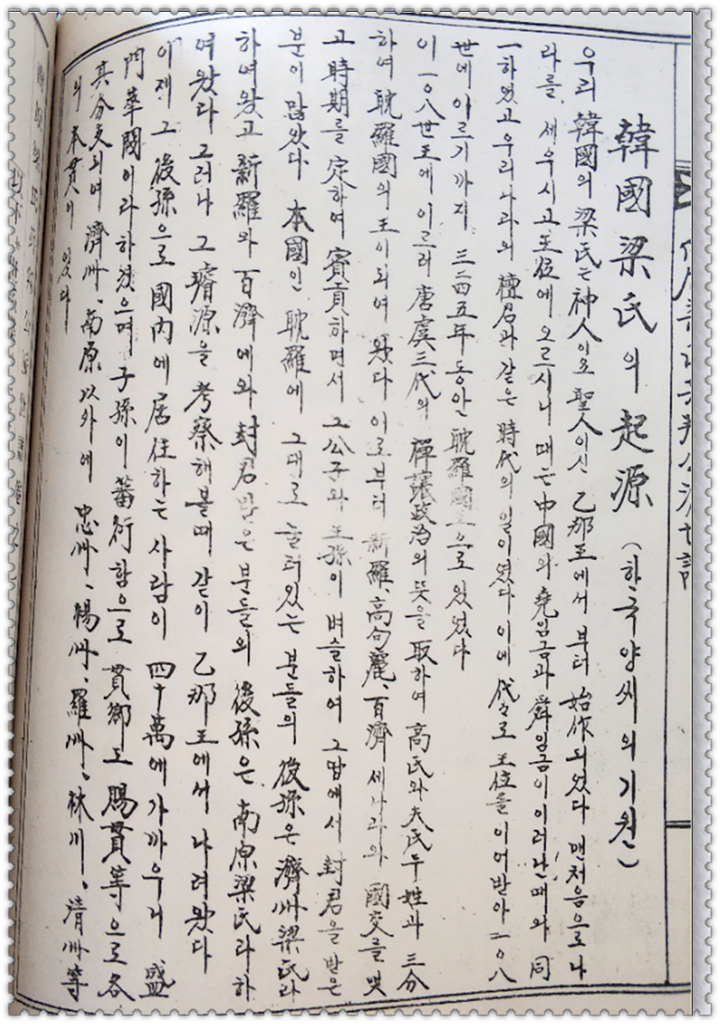 韓國梁氏의 起源 (한국양씨의기원)
우리 韓國의 梁氏는 神人이오 聖人이신 乙那王에서 부터 始作되었다 맨처음으로 나
라를 세우시고 王位에 오르시니 때는 中國의 堯임금과 舜임금이 이러난때와 同
一하였고 우리나라의 檀君과 같은 時代의 일이였다 이에 代々로 王位를 이어받아 一0八
世에 이르기까지 동안 耽羅國王으로 있었다
이 一0八世王에 이르러 唐虞三代의 禪讓政治의 뜻을 取하여 高氏와 夫氏 두姓과 三分
하여 耽羅國의 王이되여 왔다 이로부터 新羅、高句麗、百濟 세나라와 國交를 맺
고 時期를 定하여 賓貢하면서 그公子와 王孫이 벼슬하여 그땅에서 封君을 받은
분이 많았다 本國인 耽羅에 그대로 눌러있는 분들의 後孫은 濟州梁氏라
하여왔고 新羅와 百濟에와 封君받은 분들의 後孫은 南原梁氏라 하
여왔다 그러나 그 璿源을 考察해볼때 같이 乙那王에서 나려왔다
이제 그 後孫으로 國內에 居住하는 사람이 四十萬에 가까우니 盛
門華閥이라 하겠으며 子孫이 蕃衍함으로 貫鄕도 賜貫等으로 各
其分支되여 濟州、南原以外에 忠州、楊州、羅州、林川、淸州等
의 本貫이 있다